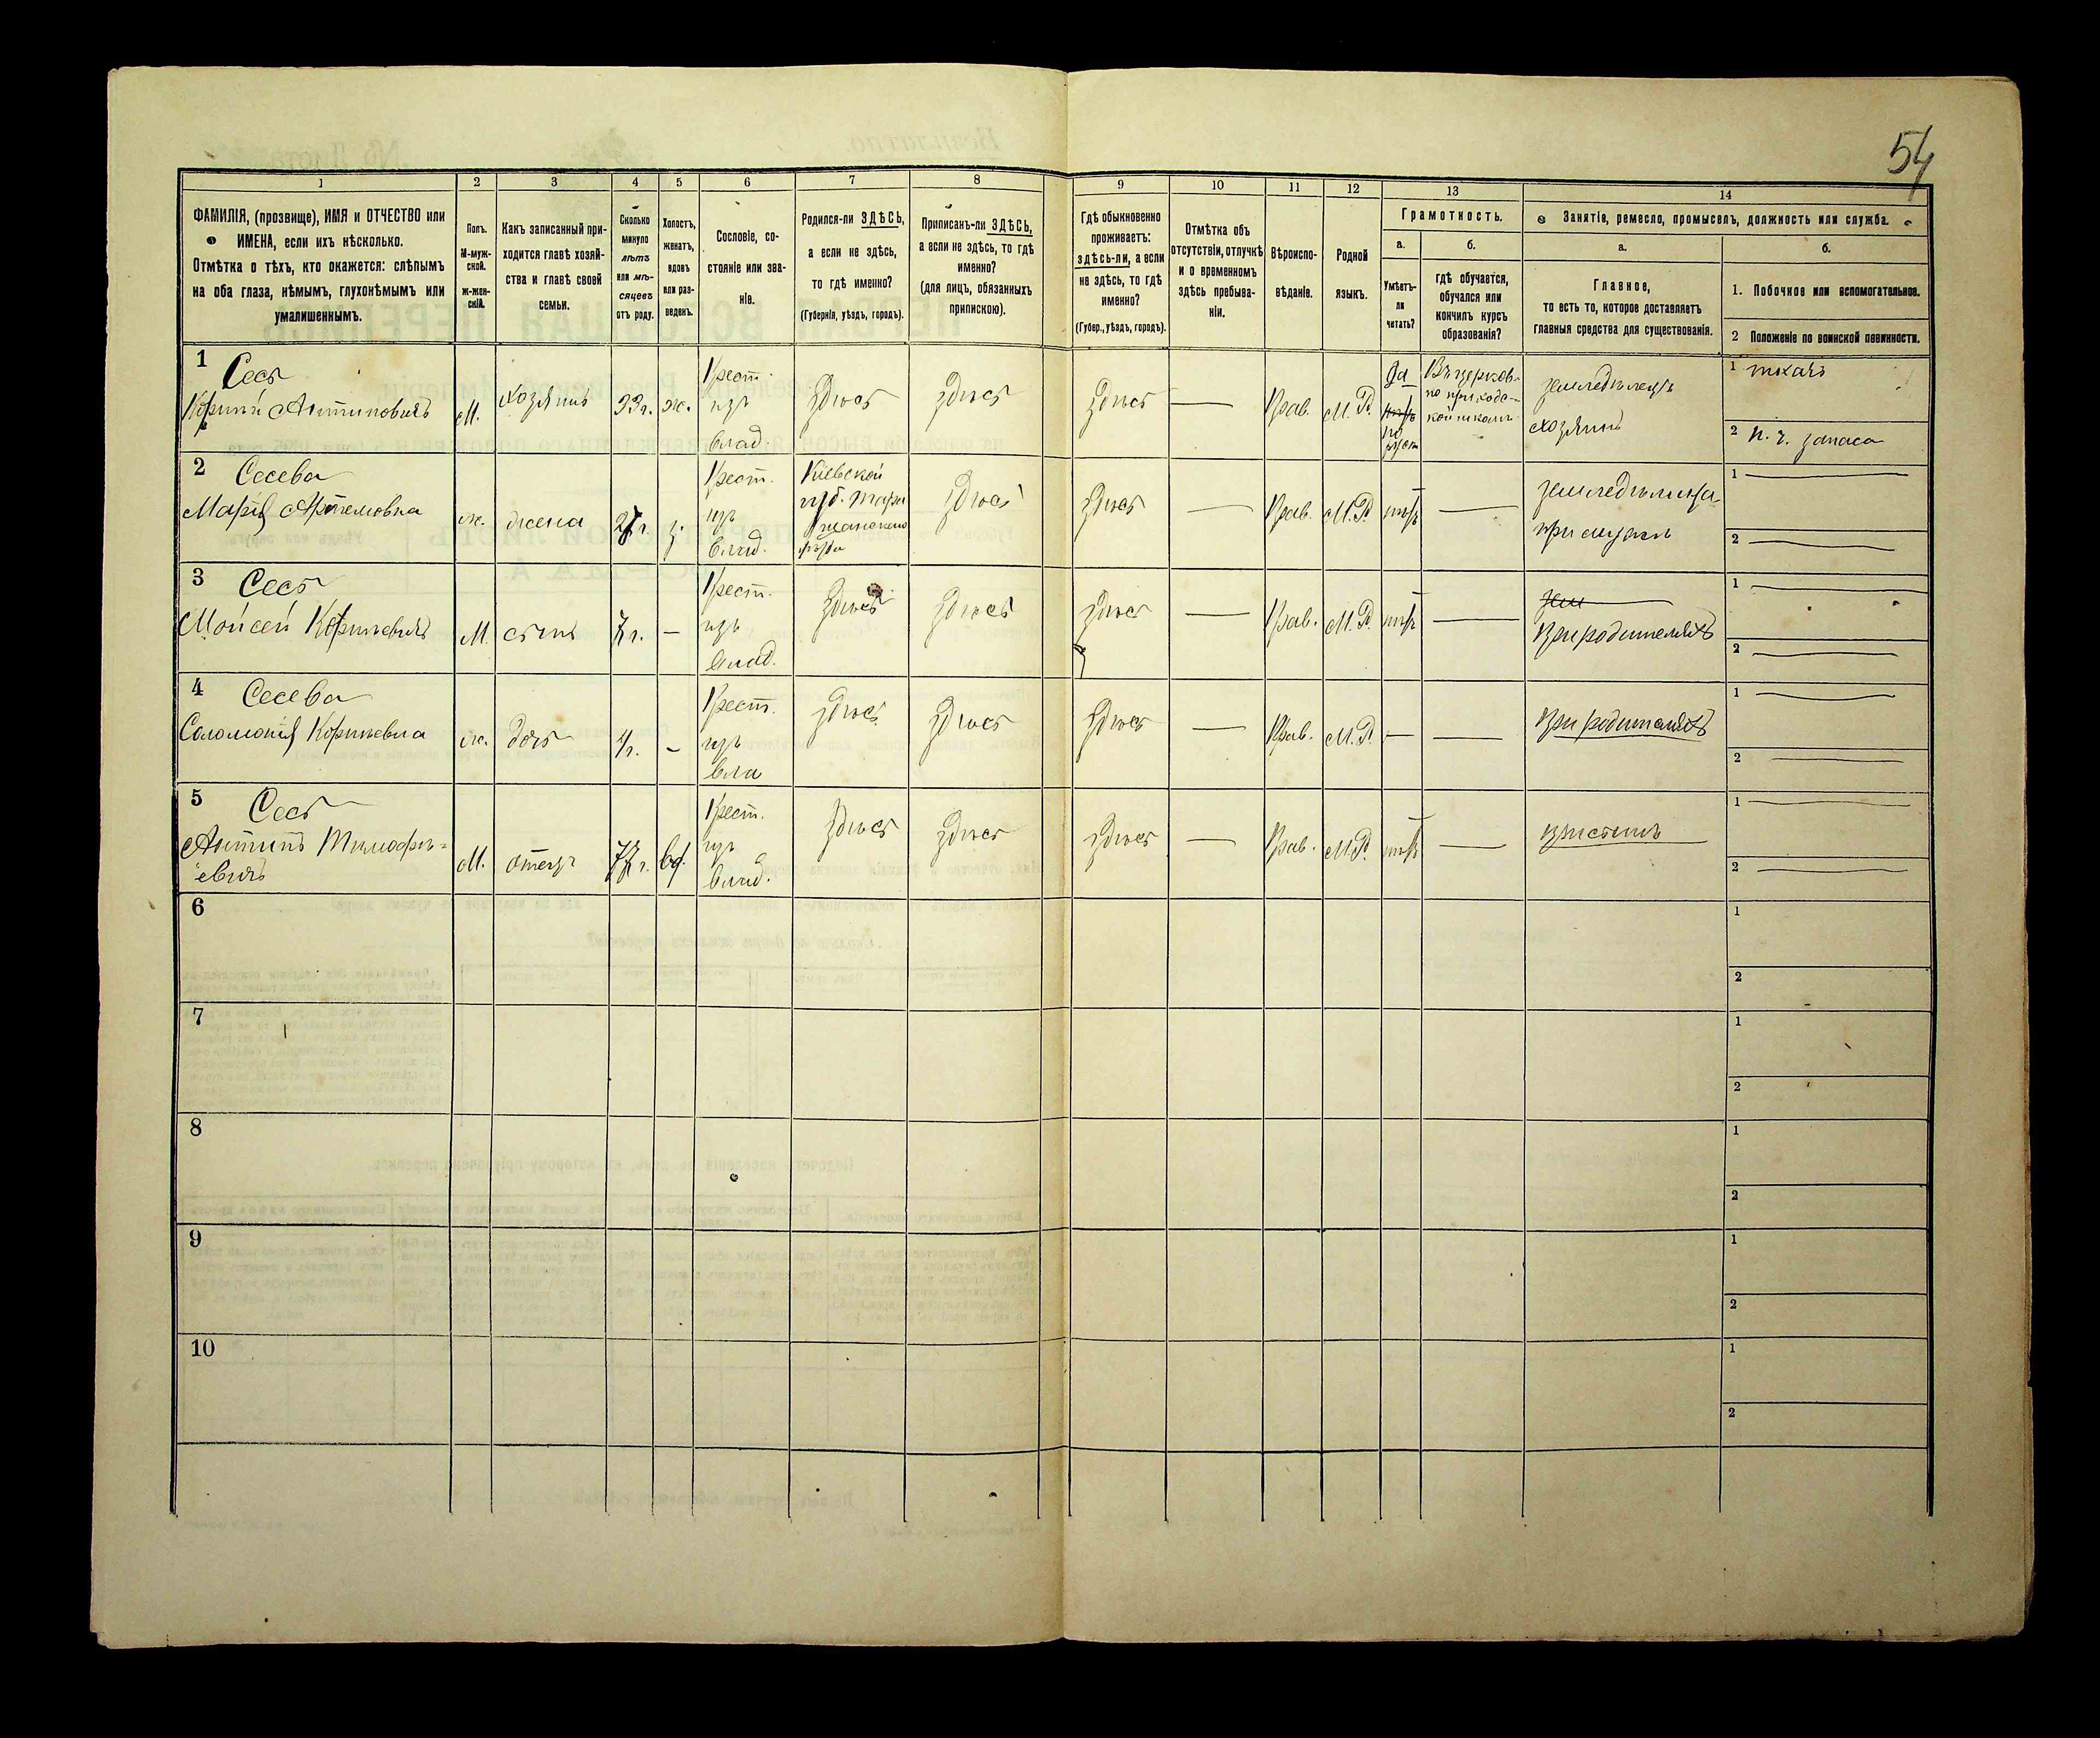 54
1
2
3
4
5
6
7
8
9
10
11
12
13
14
ФАМИЛІЯ, (прозвище), ИМЯ и ОТЧЕСТВО или
ИМЕНА, если ихъ нѣсколько.
Отмѣтка о тѣхъ, кто окажется: слѣпымъ
на оба глаза, нѣмымъ, глухонѣмымъ или
умалишеннымъ.
Полъ.
М-муж-
ской.
ж-жен-
скій.
Какъ записанный при-
ходится главѣ хозяй-
ства и главѣ своей
семьи.
Сколько
минуло
лѣтъ
или мѣ-
сяцевъ
отъ роду.
Холостъ,
женатъ,
вдовъ
или раз-
веденъ.
Сословіе, со-
стояніе или зва-
ніе.
Родился-ли ЗДѢСЬ,
а если не здѣсь,
то гдѣ именно?
(Губернія, уѣздъ, городъ).
Приписанъ-ли ЗДѢСЬ,
а если не здѣсь, то гдѣ
именно?
(для лицъ, обязанныхъ
припискою).
Гдѣ обыкновенно
проживаетъ:
здѣсь-ли, а если
не здѣсь, то гдѣ
именно?
(Губер., уѣздъ, городъ).
Отмѣтка объ
отсутствіи, отлучкѣ
и о временномъ
здѣсь пребыва-
ніи.
Вѣроиспо-
вѣданіе.
Родной
языкъ.
Грамотность.
а.
Умѣетъ-
ли
читать?
б.
гдѣ обучается,
обучался или
кончилъ курсъ
образованія?
Занятіе, ремесло, промыселъ, должность или служба.
а.
Главное,
то есть то, которое доставляетъ
главныя средства для существованія.
б.
1. Побочное или вспомогательное.
2 Положеніе по воинской повинности.
1 Сесь
Корній Антиповичъ
М.
хозяинъ
33 г.
ж.
Крест.
изъ
влад.
Здѣсь
Здѣсь
Здѣсь
—
Прав.
М. Р.
Да
Въ церков-
но приход-
кой школѣ
земледѣлецъ
хозяинъ
1 ткачъ
2 н. ч. запаса
2 Сесева
Марія Артемовна
ж.
жена
27 г.
з.
Крест.
изъ
влад.
Кіевской
губ. Тара
щанскаго
уѣзда
Здѣсь
Здѣсь
—
Прав.
М. Р.
нѣтъ
—
при мужѣ
1 —
2 —
3 Сесь
Мойсей Корніевичъ
М.
сынъ
7 г.
—
Крест.
изъ
влад.
Здѣсь
Здѣсь
Здѣсь
—
Прав.
М. Р.
нѣтъ
—
зем
При родителяхъ
1 —
2 —
4 Сесева
Соломонія Корніевна
ж.
дочь
4 г.
—
Крест.
изъ
вла
Здѣсь
Здѣсь
Здѣсь
—
Прав.
М. Р.
—
—
При родителяхъ
1 —
2 —
5 Сесь
Антипъ Тимофѣ-
евичъ
М.
отецъ
77 г.
вд.
Крест.
изъ
влад.
Здѣсь
Здѣсь
Здѣсь
—
Прав.
М. Р.
нѣтъ
—
при сынѣ
1 —
2 —
6
1
2
7
1
2
8
1
2
9
1
2
10
1
2